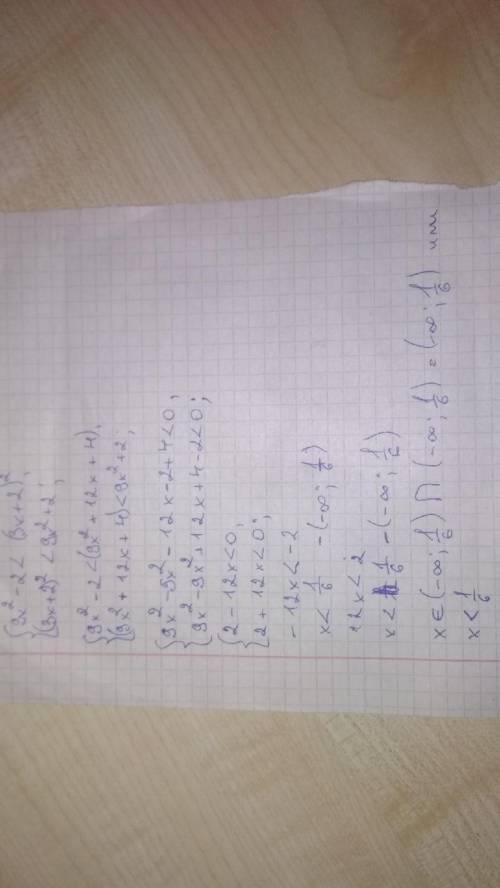 {9x² - 2 < (3x+2)²;
{(3x+2)² < 9x²+2;
{9x² - 2 < (9x² + 12x + 4),
{(9x² + 12x + 4) < 9x² + 2;
{9x² - 9x² - 12x - 2 + 4 < 0,
{9x² - 9x² + 12x + 4 - 2 < 0;
{2 - 12x < 0,
{2 + 12x < 0;
-12x < -2
x < 1/6 - (-∞; 1/6)
12x < 2
x < 1/6 - (-∞; 1/6)
x ∈ (-∞; 1/6) ∩ (-∞; 1/6) = (-∞; 1/6) или
x < 1/6